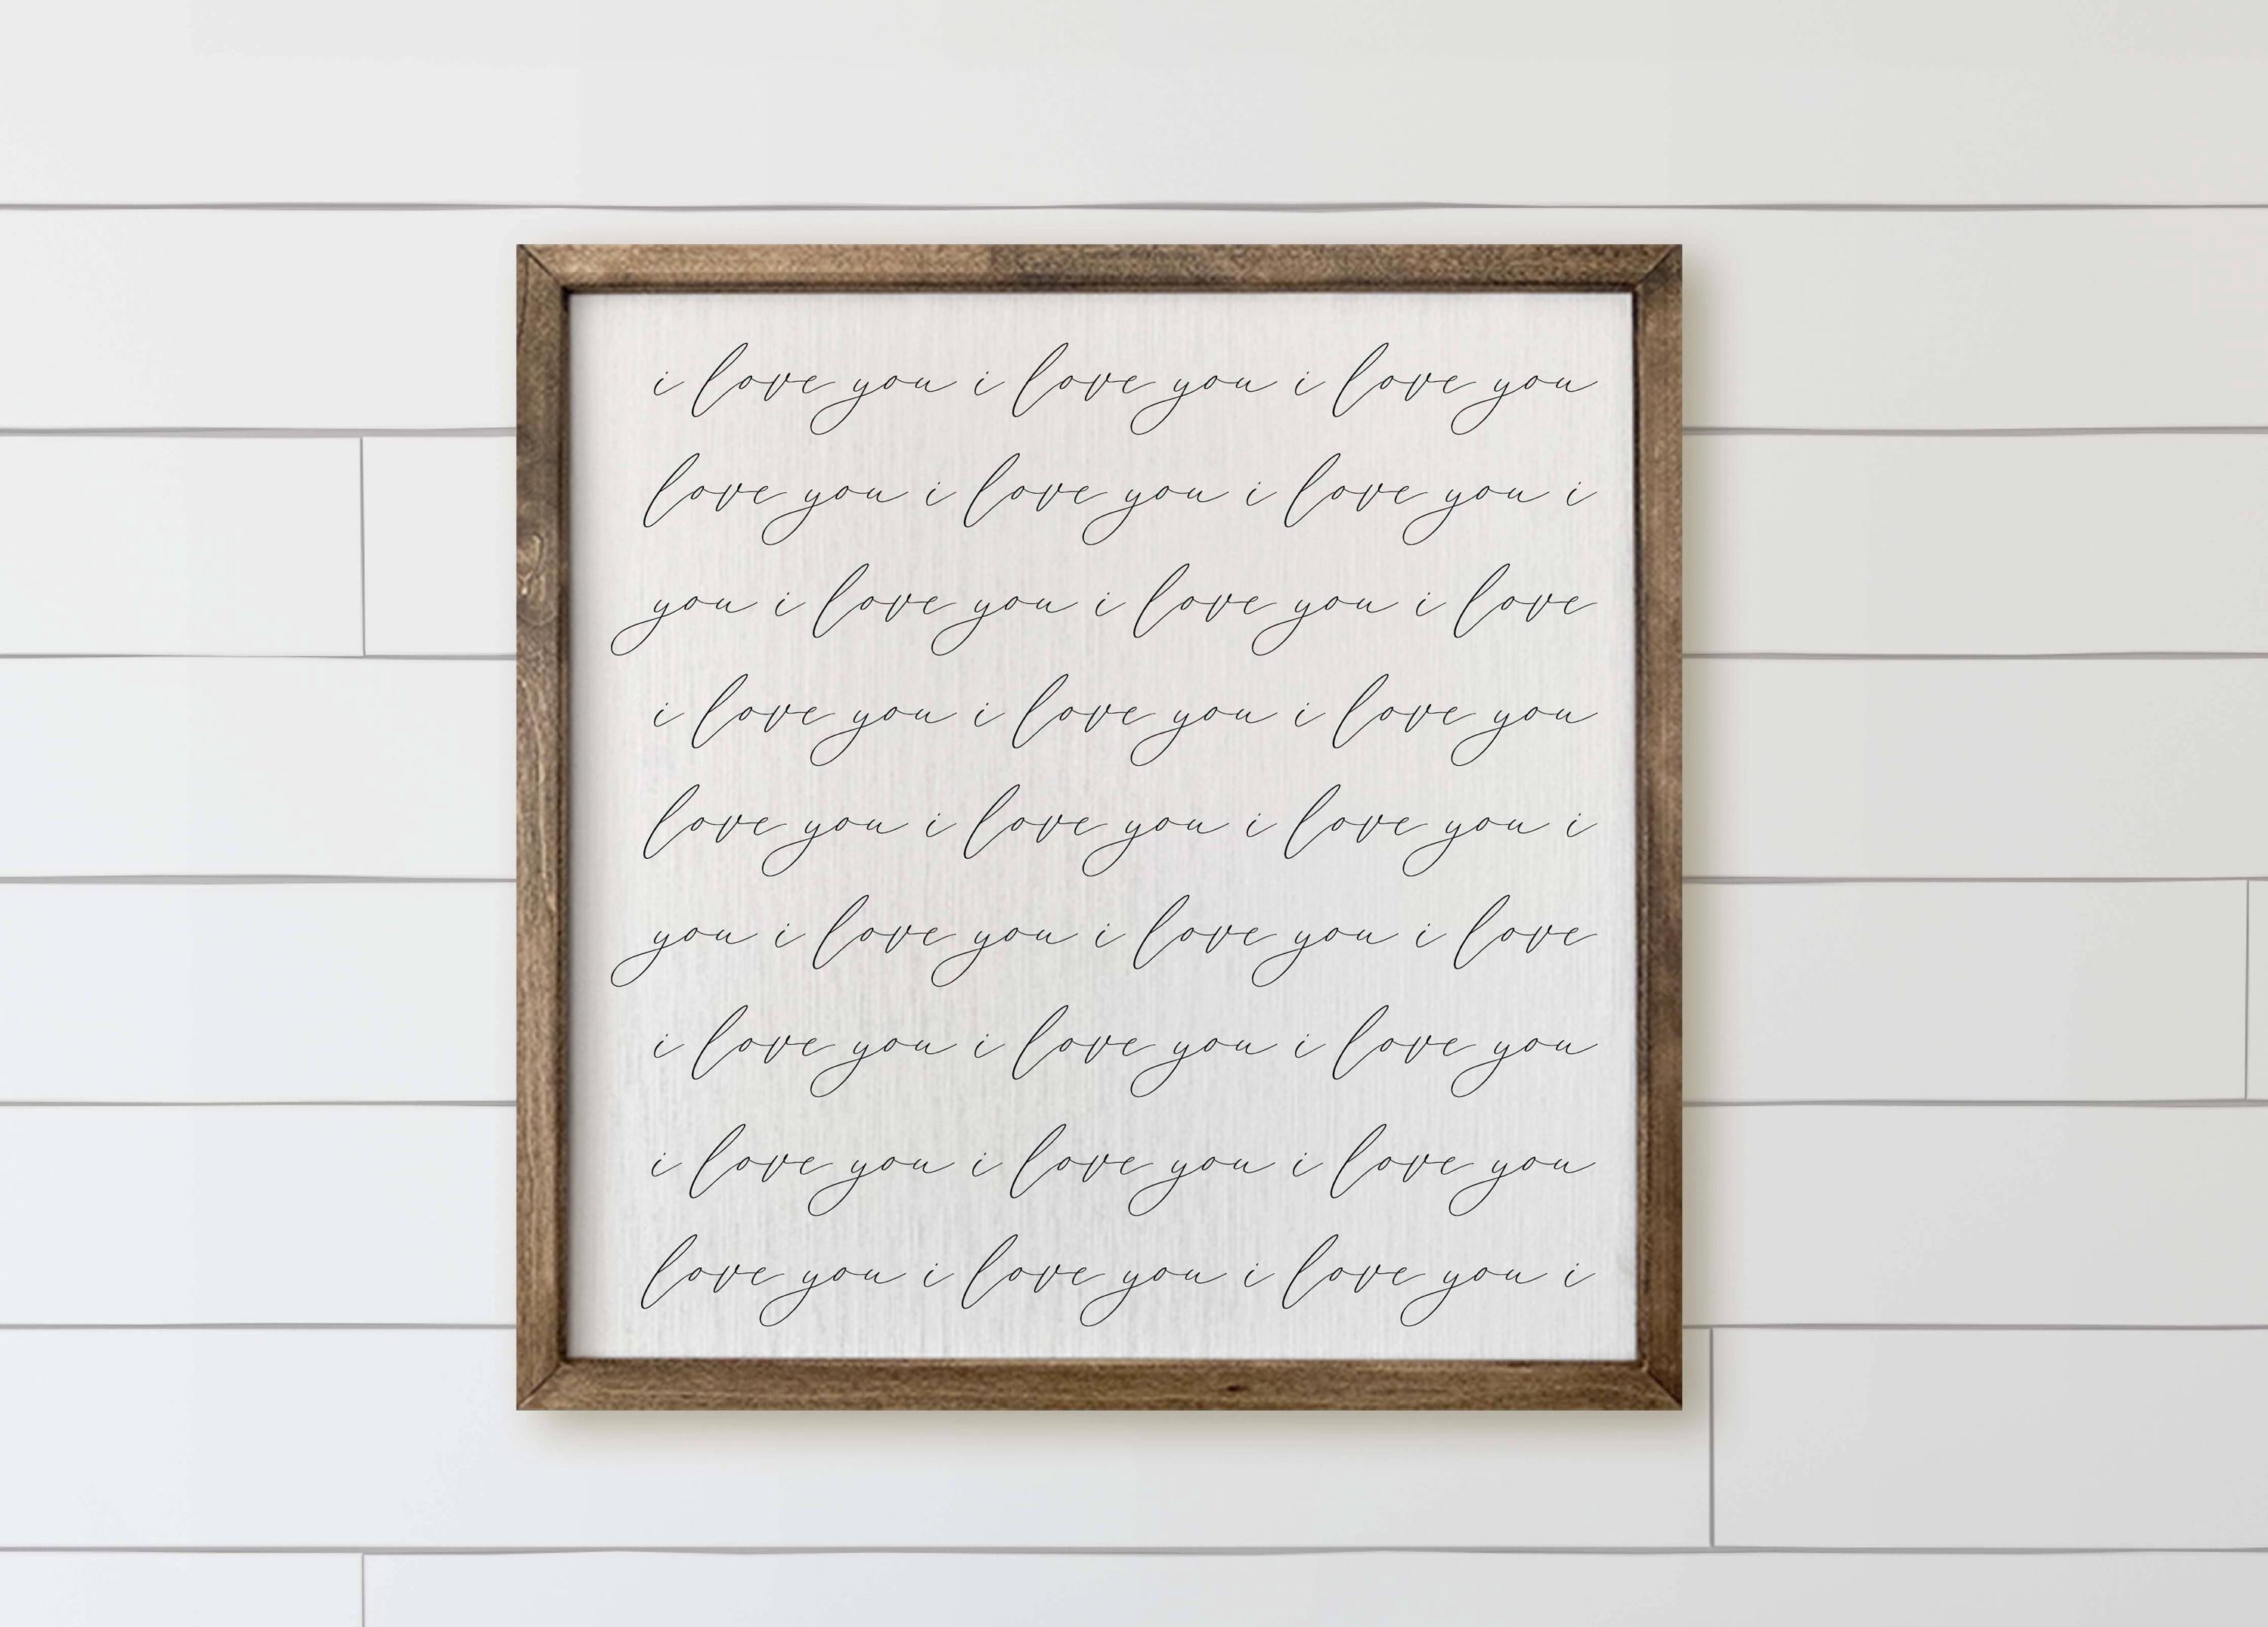 i love you i love you i love you
love you i love you i love you i
you i love you i love you i love
i love you i love you i love you
love you i love you i love you i
you i love you i love you i love
i love you i love you i love you
i love you i love you i love you
love you i love you i love you i